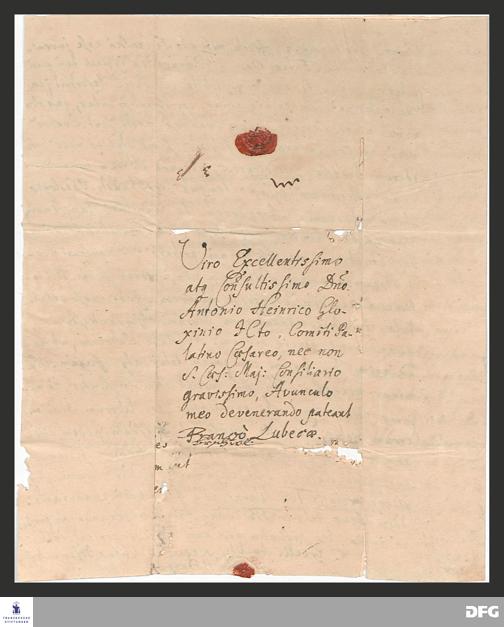 Viro Excellentissimo
atq Consultissimo Dño.
Antonio Heinrico Glo-
xinio JCto, Comiti Pa-
latino Cæsareo, nec non
S. Cæs: Maj: Consiliario
gravissimo, Avunculo
meo devenerando pateant
Francò Lubecæ.
es
m
ut
FRANCKESCHE
STIFTUNGEN
DFG